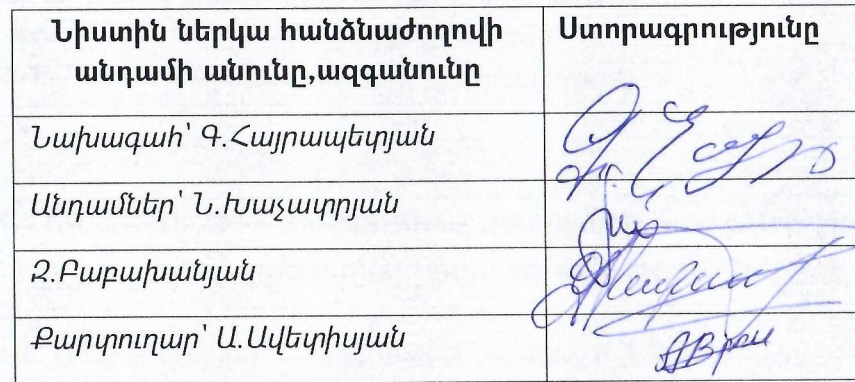 Նիստին ներկա հանձնաժողովի
անդամի անունը,ազգանունը
Ստորագրությունը
Նախագահ՝ Գ.Հայրապետյան
Անդամներ՝ Ն.Խաչատրյան
Զ.Բաբախանյան
Քարտուղար՝ Ա.Ավետիսյան